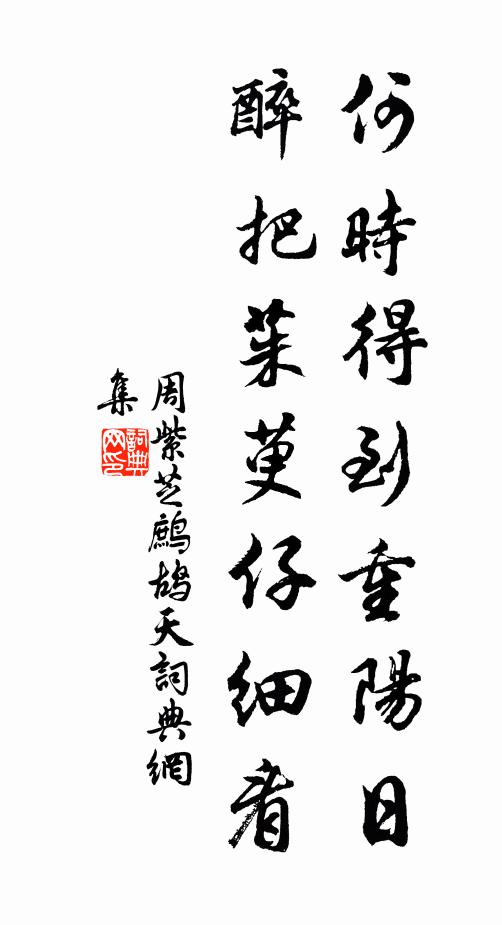 何時得到重陽日
醉把茱萸仔細看
周紫芝鷓鴣天詞典網
集
詞典網印